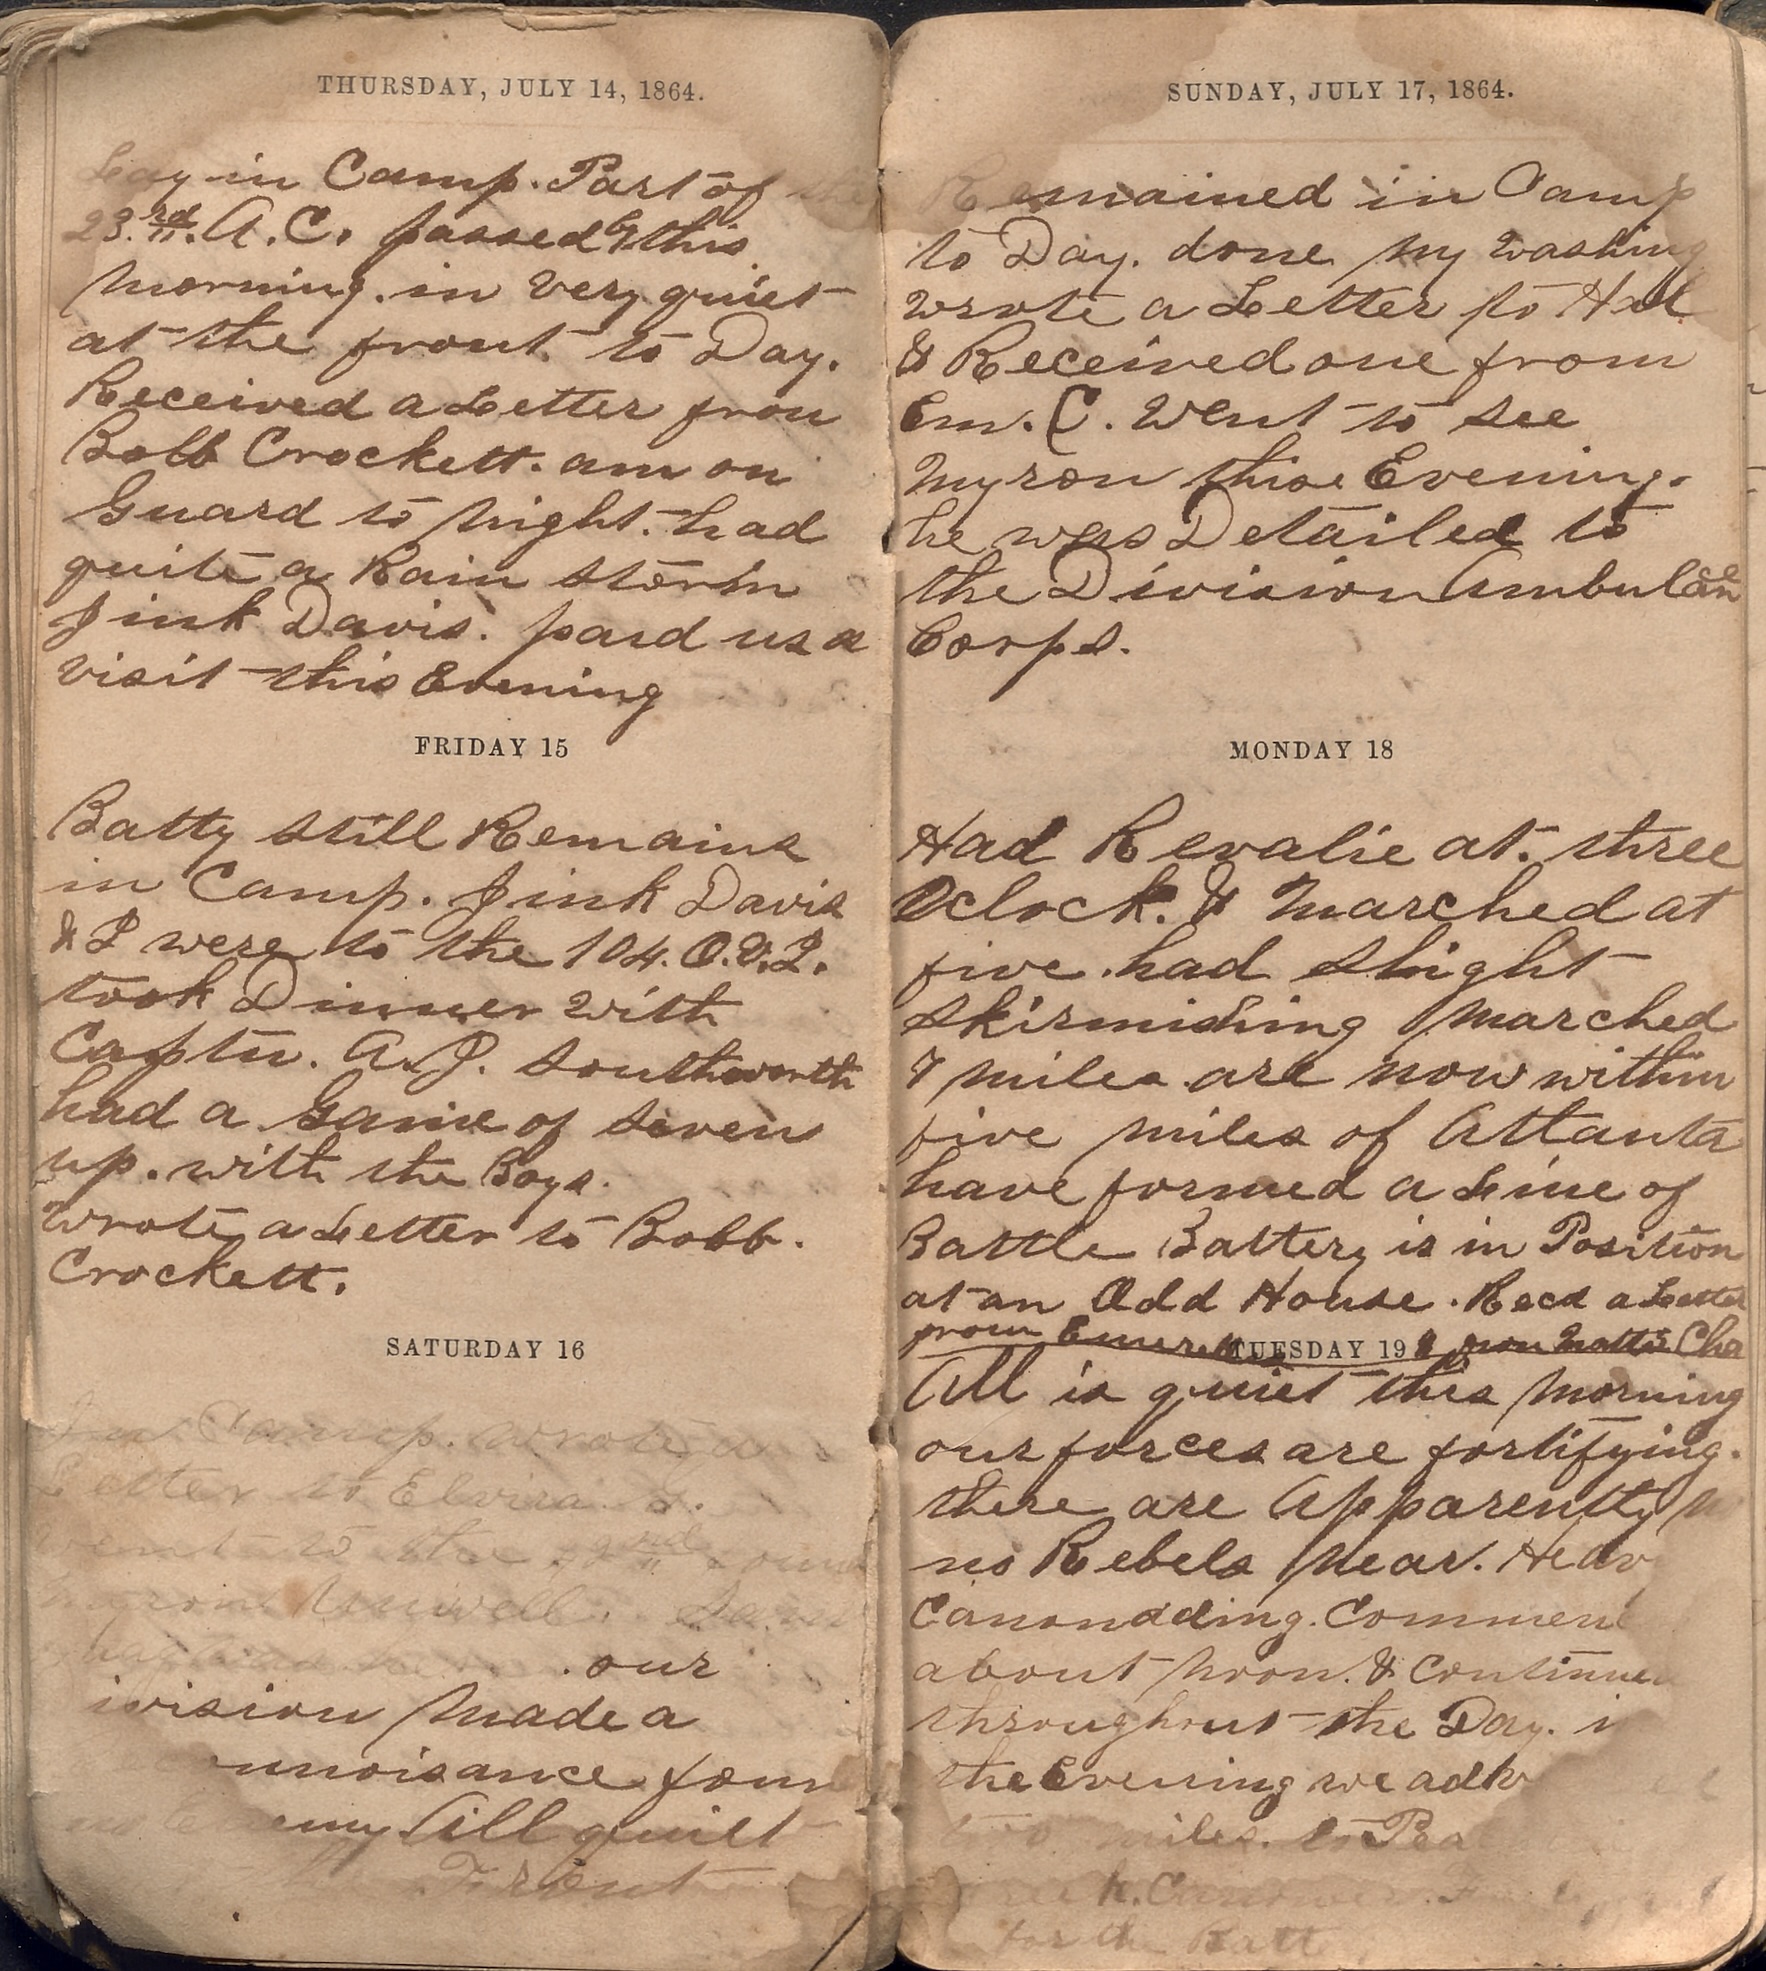 THURSDAY, JULY 14, 1864.
Lay in Camp. Part of the
23.rd. A. C. passed by this
morning. in very quiet
at the front to Day.
Received a Letter from
Bobb Crockett. am on
Guard to night. had
quite a Rain storm
Jink Davis. paid us a
visit this Evening
FRIDAY 15
Batty still Remains
in Camp. Jink Davis
& I were to the 104. O.V.I.
took Dinner with
Captn. A. J. Southworth
had a Game of Seven
up. with the Boys.
wrote a Letter to Bobb.
Crockett.
SATURDAY 16
In Camp. wrote a
Letter to Elvira. J.
went to the
Myron Unwell.
our
ivision made a
nnoisance foun
no E emy All quiet
Front
SUNDAY, JULY 17, 1864.
Remained in Camp
to Day. done my washing
wrote a Letter to Hat
& Received one from
Em. C. Went to see
Myron this Evening.
he was Detailed to
the Division Ambulance
Corps.
MONDAY 18
Had Revalie at. three
Oclock. & Marched at
five. had slight
skirmishing marched
7 miles are now within
five miles of Atlanta
have formed a Line of
Battle Battery is in Position
at an Odd House. Recd a Letter
from & from Mattie Cha
TUESDAY 19
All is quiet this morning
our forces are fortifying.
there are Apparently
no Rebels near. Heav
Canonadding. Commen
about noon. & Continue
throughout the Day. i
the Evening we adv
two miles. to Pea
for the Batt